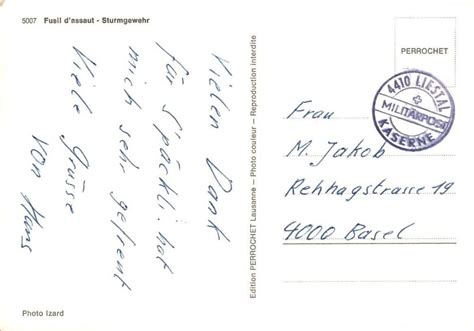 5007 Fusil d'assaut - Sturmgewehr
Vielen Dank
für s'päckli. hat
mich sehr gefreut
Viele Grüsse
von Hans
Photo Izard
Edition PERROCHET Lausanne – Photo couleur – Reproduction interdite
PERROCHET
4410 LIESTAL
MILITÄRPOST
KASERNE
Frau
M. Jakob
Rehhagstrasse 19
4000 Basel